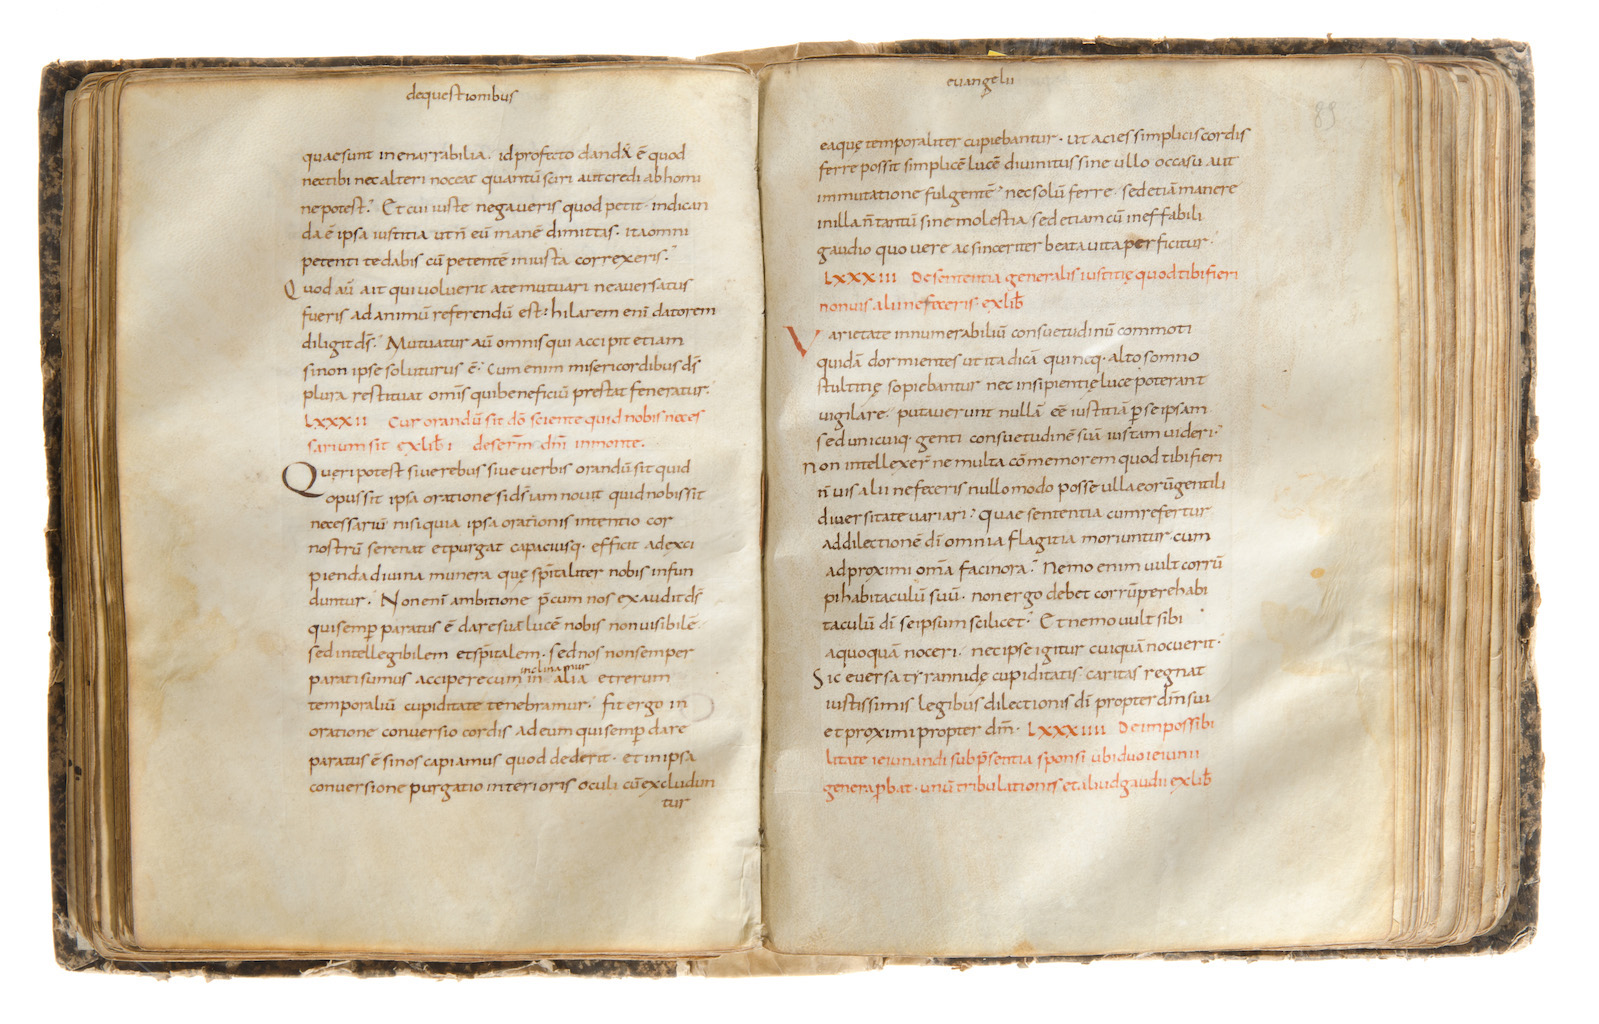 dequestionibus
quae sunt inenarrabilia. id profecto dandū ē quod
nec tibi nec alteri noceat quantū sciri aut credi ab homi
ne potest; Et cui iuste negaveris quod petit. indican
da ē ipsa iustitia ut n̄ eū inanē dimittas. ita omni
petenti te dabis cū petentē iniusta correxeris;
Quod aū ait qui voluerit a te mutuari ne aversatus
fueris ad animū referendū est; hilarem enī datorem
diligit d̄s; Mutuatur aū omnis qui accipit etiam
si non ipse soluturus ē; Cum enim misericordibus d̄s
plura restituat om̄s qui beneficiū prestat feneratur;
LXXXII Cur orandū sit dō sciente quid nobis neces
sarium sit ex lib̄ I de serm̄ dn̄i in monte.
Queri potest sive rebus sive verbis orandū sit quid
opus sit ipsa oratione si d̄s iam novit quid nobis sit
necessariū nisi quia ipsa orationis intentio cor
nostrū serenat et purgat capaciusq· efficit ad exci
pienda divina munera quę sp̄italiter nobis infun
duntur; Non enī ambitione p̄cum nos exaudit d̄s
qui semp̄ paratus ē dare suā lucē nobis non visibilē
sed intellegibilem et sp̄italem. sed nos non semper
inclinamur
parati sumus accipere cum in alia et rerum
temporaliū cupiditate tenebramur; fit ergo in
oratione conversio cordis ad eum qui semp̄ dare
paratus ē si nos capiamus quod dederit. et in ipsa
conversione purgatio interioris oculi cū excludun
tur
evangelii
89
eaquę temporaliter cupiebantur. ut acies simplicis cordis
ferre possit simplicē lucē divinitus sine ullo occasu aut
immutatione fulgentē; nec solū ferre. sed etiā manere
in illa n̄ tantū sine molestia sed etiam cū ineffabili
gaudio quo vere ac sinceriter beata vita perficitur;
LXXXIII De sententia generalis iustitię quod tibi fieri
non vis alii ne feceris. ex lib̄
Varietate innumerabiliū consuetudinū commoti
quidā dormientes ut ita dicā quincq· alto somno
stultitię sopiebantur nec insipientię luce poterant
vigilare. putaverunt nullā eē iustitiā p̄ se ipsam
sed unicuiq· genti consuetudinē suā iustam videri;
Non intellexer̄ ne multa cōmemorem quod tibi fieri
n̄ vis alii ne feceris nullo modo posse ulla eorū gentili
diversitate variari; Quae sententia cum refertur
ad dilectionē dī omnia flagitia moriuntur. cum
ad proximi om̄a facinora; Nemo enim vult corrū
pi habitaculū suū. non ergo debet corrūpere habi
taculū dī se ipsum scilicet; Et nemo vult sibi
a quoquā noceri. nec ipse igitur cuiquā nocuerit;
Sic eversa tyrannidę cupiditatis. caritas regnat
iustissimis legibus dilectionis dī propter dn̄m sui
et proximi propter dm̄. LXXXIIII De impossibi
litate ieiunandi sub p̄sentia sponsi ubi duo ieiunii
genera p̄bat. unū tribulationis et aliud gaudii ex lib̄